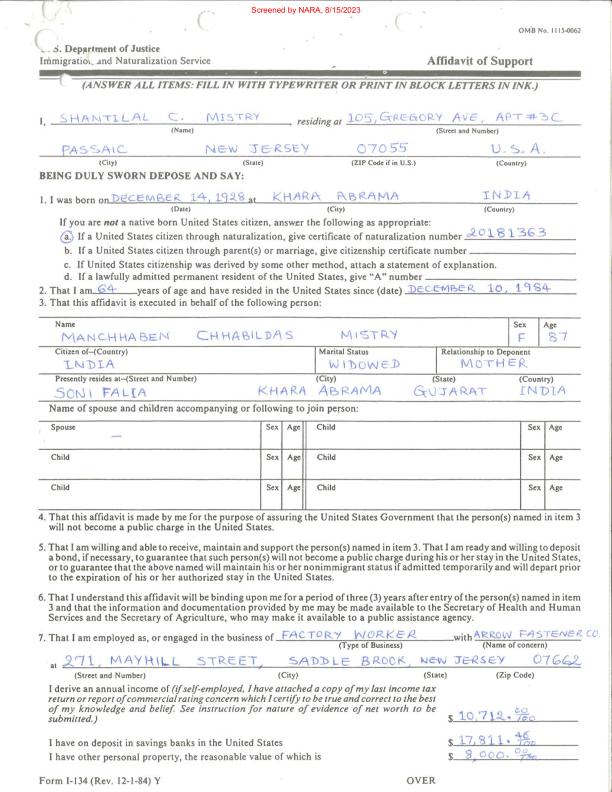 Screened by NARA, 8/15/2023
OMB No. 1115-0062
. S. Department of Justice
Immigration and Naturalization Service
Affidavit of Support
(ANSWER ALL ITEMS: FILL IN WITH TYPEWRITER OR PRINT IN BLOCK LETTERS IN INK.)
I, SHANTILAL C. MISTRY residing at 105, GREGORY AVE, APT #3C
(Name) (Street and Number)
PASSAIC NEW JERSEY 07055 U.S.A.
(City) (State) (ZIP Code if in U.S.) (Country)
BEING DULY SWORN DEPOSE AND SAY:
1. I was born on DECEMBER 14, 1928 at KHARA ABRAMA INDIA
(Date) (City) (Country)
If you are not a native born United States citizen, answer the following as appropriate:
a. If a United States citizen through naturalization, give certificate of naturalization number 20181363
b. If a United States citizen through parent(s) or marriage, give citizenship certificate number
c. If United States citizenship was derived by some other method, attach a statement of explanation.
d. If a lawfully admitted permanent resident of the United States, give "A" number
2. That I am 64 years of age and have resided in the United States since (date) DECEMBER 10, 1984
3. That this affidavit is executed in behalf of the following person:
Name Sex Age
MANCHHABEN CHHABILDAS MISTRY F 87
Citizen of—(Country) Marital Status Relationship to Deponent
INDIA WIDOWED MOTHER
Presently resides at—(Street and Number) (City) (State) (Country)
SONI FALIA KHARA ABRAMA GUJARAT INDIA
Name of spouse and children accompanying or following to join person:
Spouse Sex Age Child Sex Age
—
Child Sex Age Child Sex Age
Child Sex Age Child Sex Age
4. That this affidavit is made by me for the purpose of assuring the United States Government that the person(s) named in item 3
will not become a public charge in the United States.
5. That I am willing and able to receive, maintain and support the person(s) named in item 3. That I am ready and willing to deposit
a bond, if necessary, to guarantee that such person(s) will not become a public charge during his or her stay in the United States,
or to guarantee that the above named will maintain his or her nonimmigrant status if admitted temporarily and will depart prior
to the expiration of his or her authorized stay in the United States.
6. That I understand this affidavit will be binding upon me for a period of three (3) years after entry of the person(s) named in item
3 and that the information and documentation provided by me may be made available to the Secretary of Health and Human
Services and the Secretary of Agriculture, who may make it available to a public assistance agency.
7. That I am employed as, or engaged in the business of FACTORY WORKER with ARROW FASTENER CO.
(Type of Business) (Name of concern)
at 271, MAYHILL STREET, SADDLE BROOK, NEW JERSEY 07662
(Street and Number) (City) (State) (Zip Code)
I derive an annual income of (if self-employed, I have attached a copy of my last income tax
return or report of commercial rating concern which I certify to be true and correct to the best
of my knowledge and belief. See instruction for nature of evidence of net worth to be
submitted.) $ 10,712. 00/100
I have on deposit in savings banks in the United States $ 17,811. 46/100
I have other personal property, the reasonable value of which is $ 8,000. 00/100
Form I-134 (Rev. 12-1-84) Y OVER